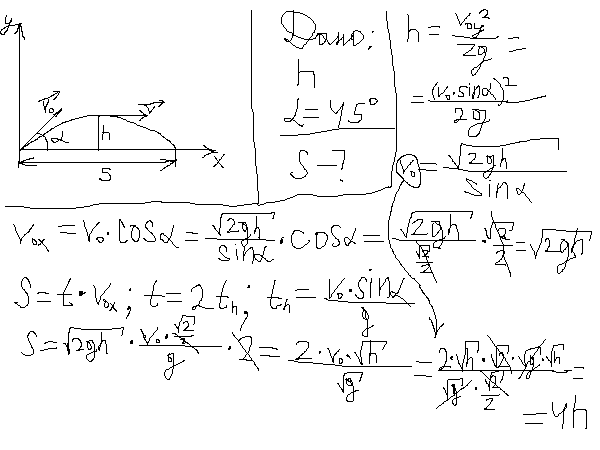 y
V₀
V
α
h
x
S
Дано:
h
α=45°
S-?
h = V₀y²/2g =
= (V₀·sinα)²/2g
V₀ = √2gh/sinα
V₀ₓ = V₀·cosα = √2gh/sinα · cosα = √2gh/(√2/2) · √2/2 = √2gh
S = t·V₀ₓ; t = 2tₕ; tₕ = V₀·sinα/g
S = √2gh · (V₀·√2/2)/g · 2 = 2·V₀·√h/√g = 2·√h·√2·√g·√h/(√g·√2/2) =
= 4h